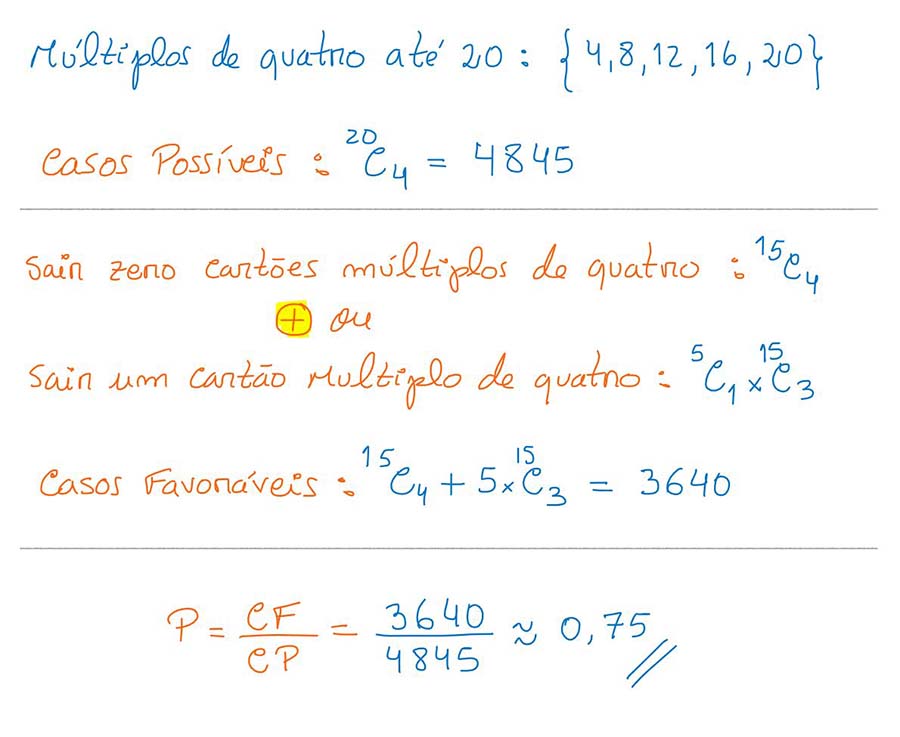 Múltiplos de quatro até 20 : {4,8,12,16,20}
Casos Possíveis : ²⁰C₄ = 4845
Sair zero cartões múltiplos de quatro : ¹⁵C₄
+ ou
Sair um cartão Multiplo de quatro : ⁵C₁ × ¹⁵C₃
Casos Favoráveis : ¹⁵C₄ + 5 × ¹⁵C₃ = 3640
P = CF/CP = 3640/4845 ≈ 0,75